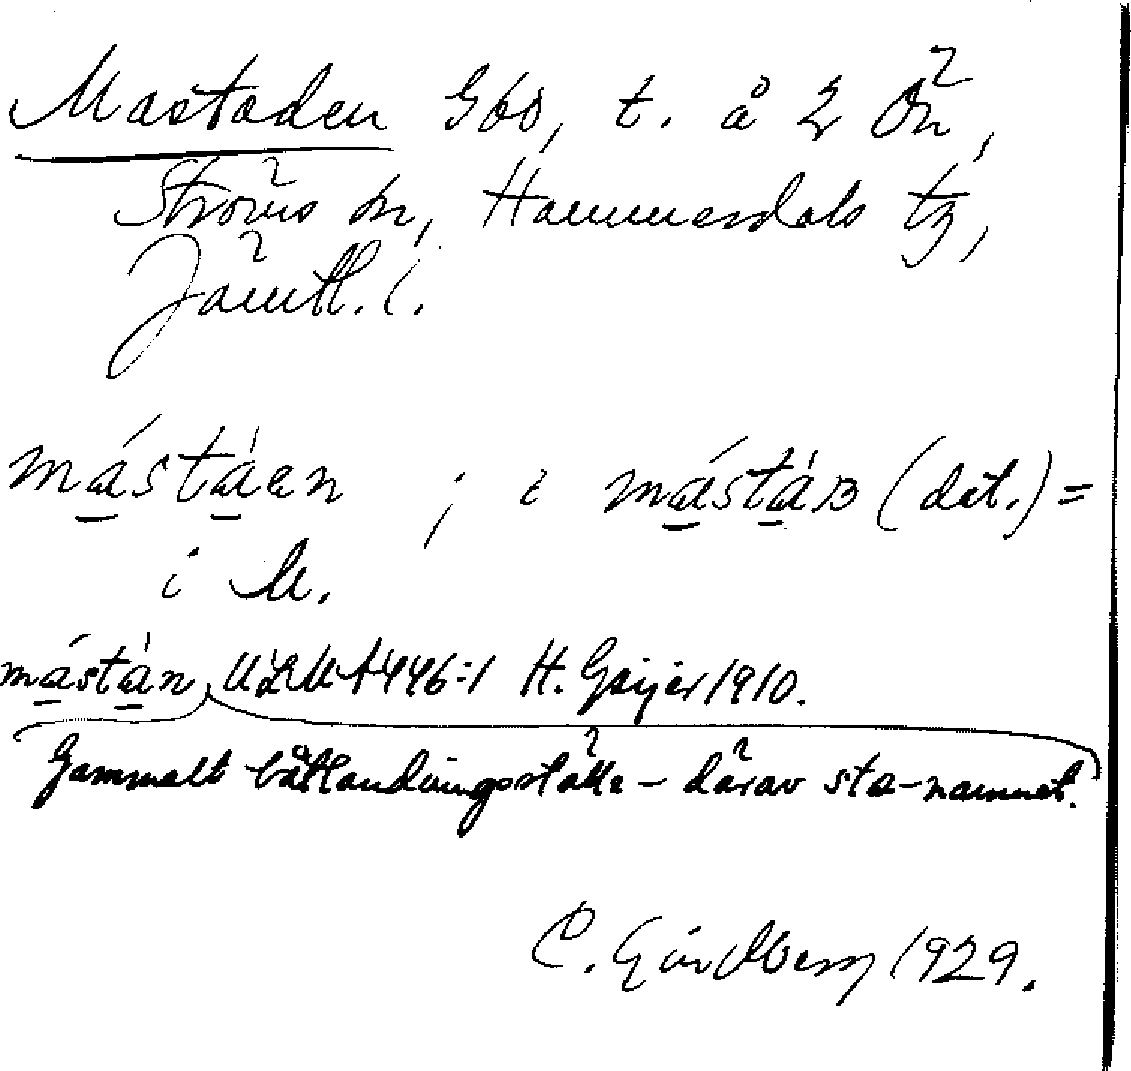 Mastaden Gbo, t. å 2 Ön,
Ströms sn, Hammerdals tg,
Jämtl. l.
mástáen ; i mástáɴ (dat.) =
i M.
mástán, ULMA 446:1 H. Geijer 1910.
Gammalt båtlandningsställe – därav sta-namnet.
C. Lindberg 1929.